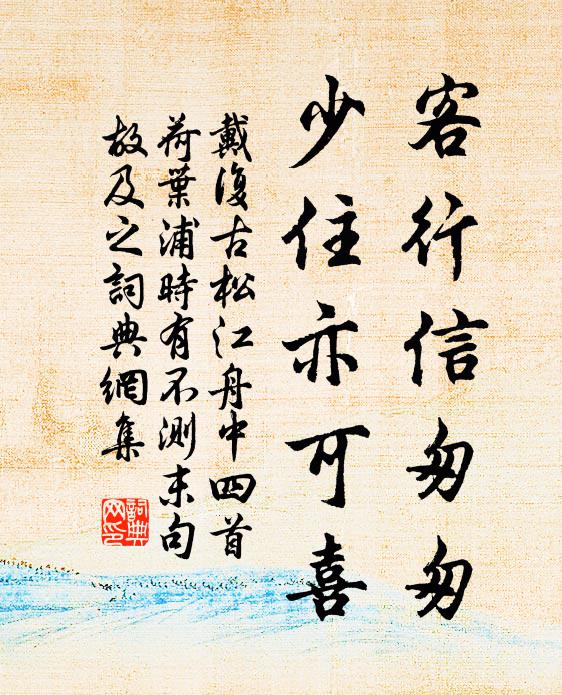 客行信匆匆
少住亦可喜
戴復古松江舟中四首
荷葉浦時有不測末句
故及之詞典網集
詞典